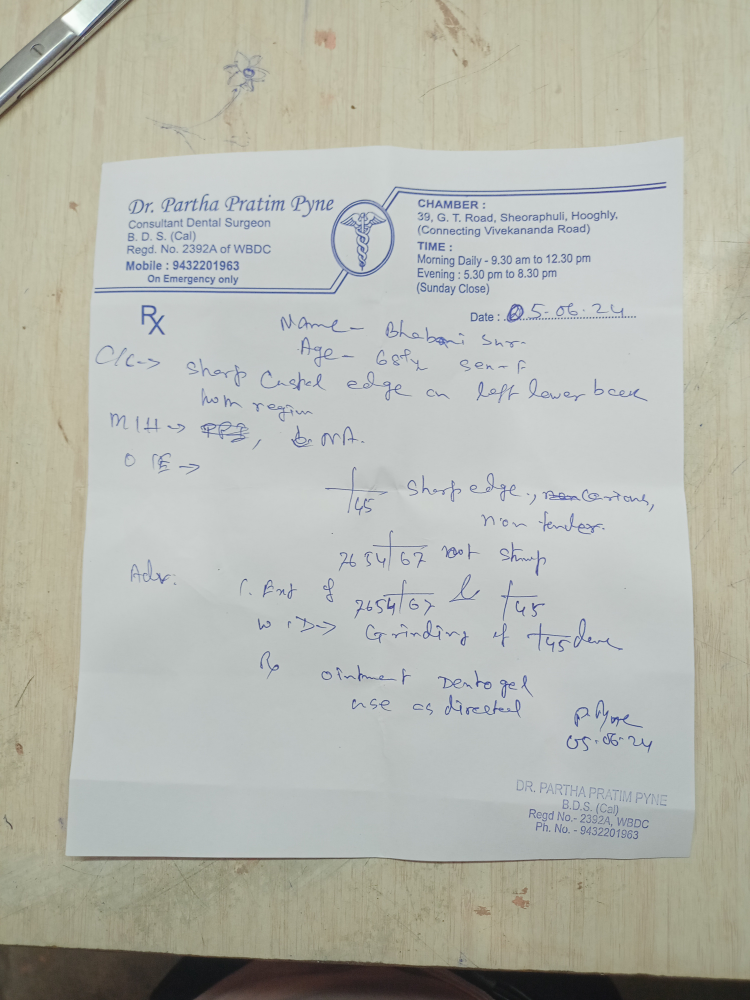 Dr. Partha Pratim Pyne
Consultant Dental Surgeon
B. D. S. (Cal)
Regd. No. 2392A of WBDC
Mobile : 9432201963
On Emergency only
CHAMBER :
39, G. T. Road, Sheoraphuli, Hooghly,
(Connecting Vivekananda Road)
TIME :
Morning Daily - 9.30 am to 12.30 pm
Evening : 5.30 pm to 8.30 pm
(Sunday Close)
Rx
Date : 05-06-24
Name - Bhabani Sur.
Age - 68 Sex - F
C/C -> Sharp Cuspal edge on left lower back
region
M/H -> , NA.
O/E ->
45 Sharp edge, carious,
non tender.
7654 67 root stump
Adv: 1. Ext of 7654 67 & 45
-> Grinding of 45 done
Rx ointment Dentogel
use as directed
P. Pyne
05-06-24
DR. PARTHA PRATIM PYNE
B.D.S. (Cal)
Regd No.- 2392A, WBDC
Ph. No. - 9432201963